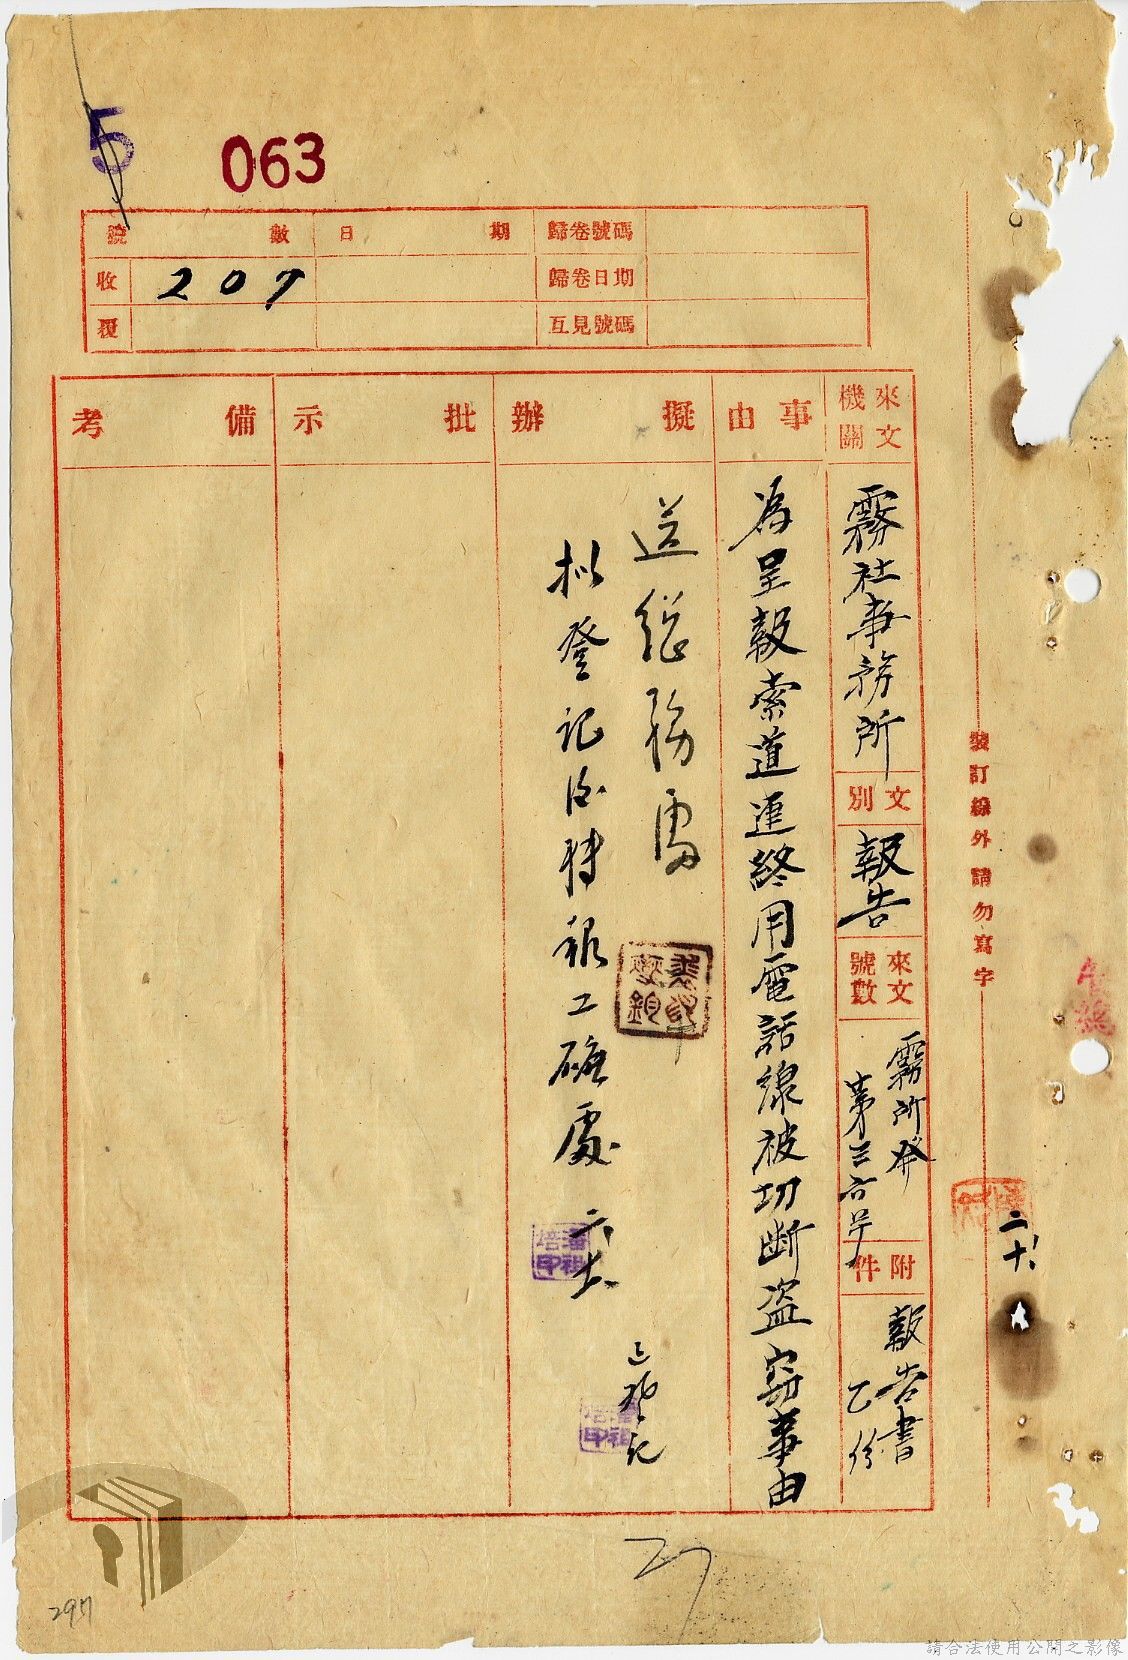 5
063
號數 日期 歸卷號碼
收 207 歸卷日期
覆 互見號碼
來文機關
霧社事務所
文別
報告
來文號數
霧所發
第三六号
附件
報告書
乙份
事由
為呈報索道連終用電話線被切断盗窃事由
擬辦
送總務處
拟登記后转報工礦處 六、
已登記
潘祖培印
潘祖培印
批示
備考
裝訂線外請勿寫字
二、十、
27
297
請合法使用公開之影像